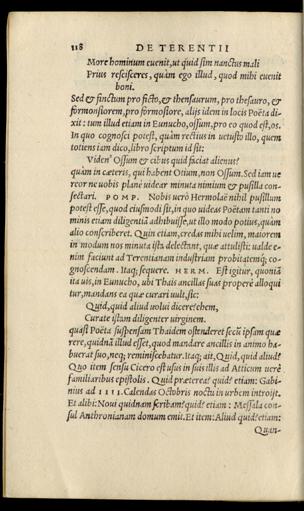 118 DE TERENTII
More hominum euenit, ut quid sim nanctus mali
Prius rescisceres, quàm ego illud, quod mihi euenit
boni.
Sed & finctum pro ficto, & thensaurum, pro thesauro, &
formonsiorem, pro formosiore, alijs idem in locis Poëta di-
xit: tum illud etiam in Eunucho, ossum, pro eo quod est, os.
In quo cognosci potest, quàm rectius in uetusto illo, quem
toties iam dico, libro scriptum id sit:
Viden' Ossum & cibus quid faciat alienus?
quàm in cæteris, qui habent Otium, non Ossum. Sed iam ue
reor ne uobis planè uidear minuta nimium & pusilla con-
sectari. POMP. Nobis uerò Hermolaë nihil pusillum
potest esse, quod eiusmodi sit, in quo uideas Poëtam tanti no
minis etiam diligentiã adhibuisse, ut illo modo potius, quàm
alio conscriberet. Quin etiam, credas mihi uelim, maiorem
in modum nos minuta ista delectant, quæ attulisti: ualde e-
nim faciunt ad Terentianam industriam probitatemq; co-
gnoscendam. Itaq; sequere. HERM. Est igitur, quoniã
ita uis, in Eunucho, ubi Thais ancillas suas properè alloqui
tur, mandans ea quæ curari uult, sic:
Quid, quid aliud uolui dicere? ehem,
Curate istam diligenter uirginem.
quasi Poëta suspensam Thaidem ostenderet secũ ipsam quæ
rere, quidnã illud esset, quod mandare ancillis in animo ha-
buerat suo, neq; reminisceretur. Itaq; ait, Quid, quid aliud?
Quo item sensu Cicero est usus in suis illis ad Atticum uerè
familiaribus epistolis. Quid præterea? quid? etiam: Gabi-
nius ad IIII. Calendas Octobris noctu in urbem introijt.
Et alibi: Noui quidnam scribam? quid? etiam: Messala con-
sul Anthronianam domum emit. Et item: Aliud quid? etiam:
Quan-